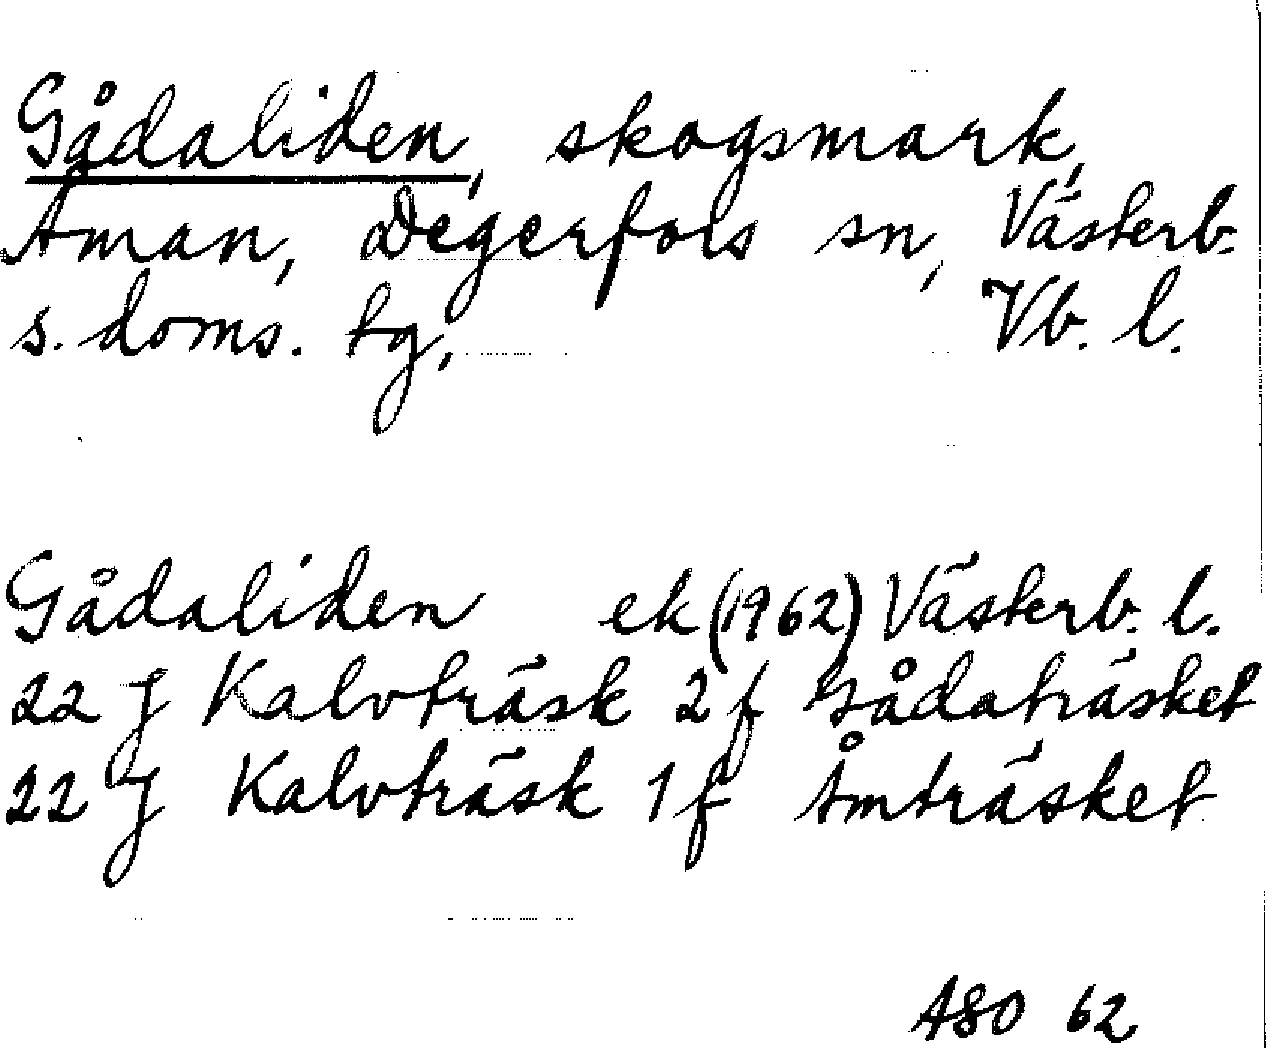 Gådaliden, skogsmark,
Åman, Degerfors sn, Västerb.
s. doms. tg, Vb. l.
Gådaliden ek (1962) Västerb. l.
22 J Kalvträsk 2 f Gådaträsket
22 J Kalvträsk 1 f Åmträsket
ASO 62